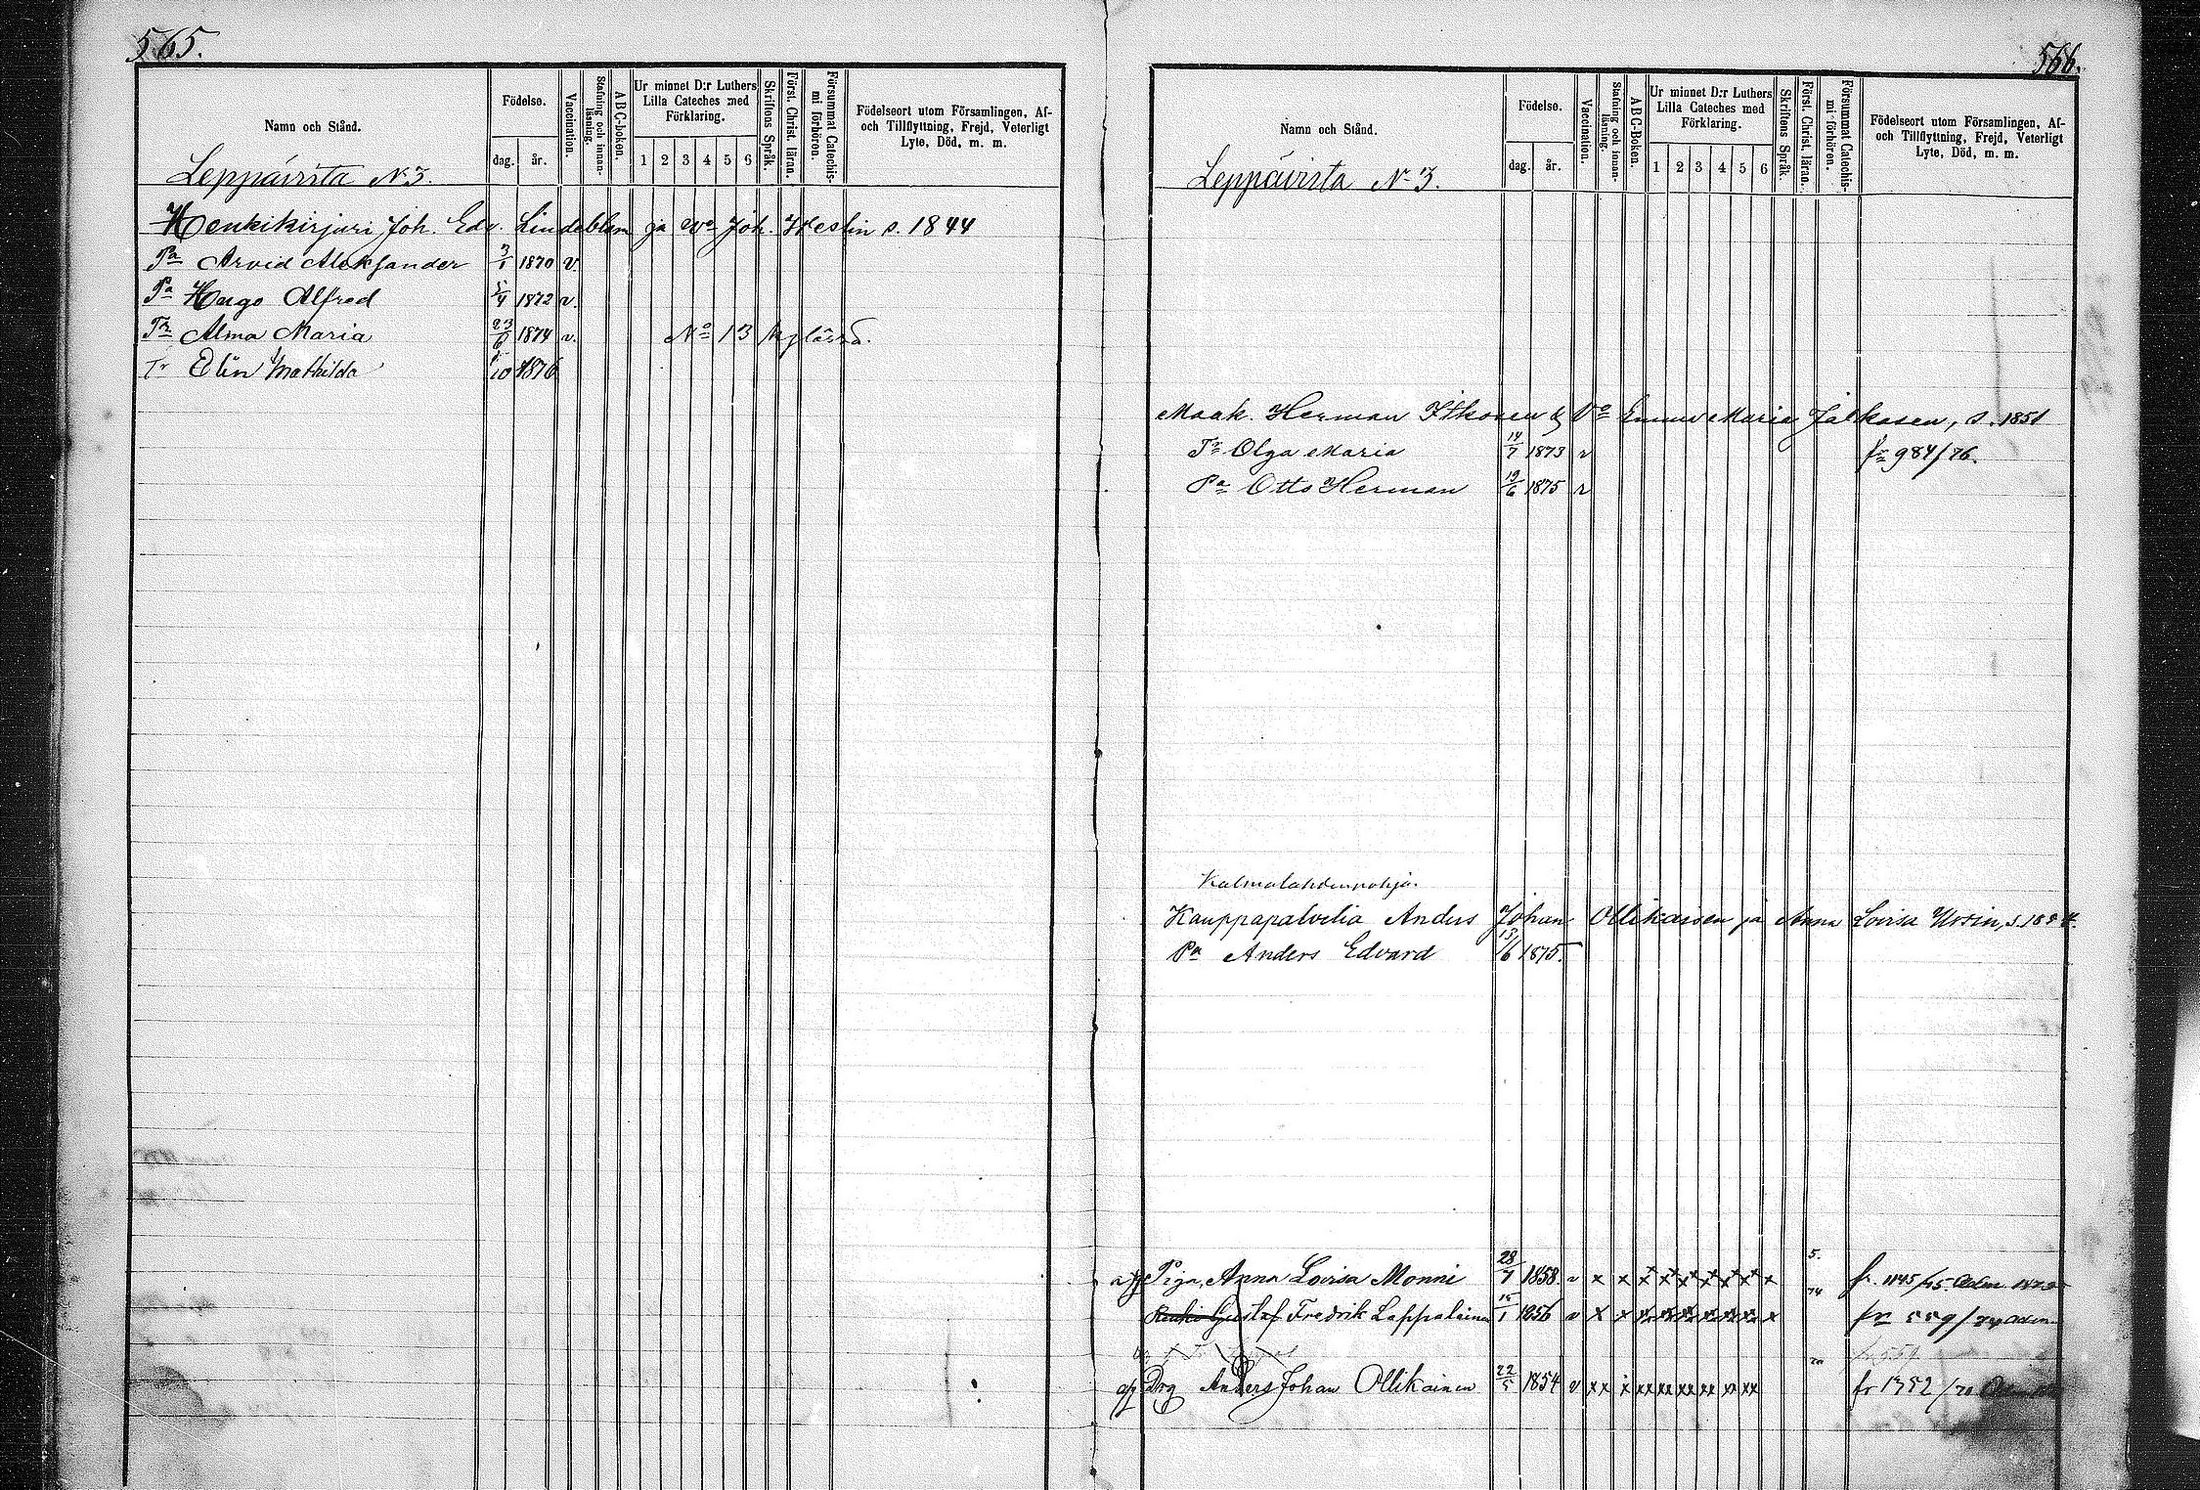 565.
Namn och Stånd.
Födelse.
dag.
år.
Vaccination.
Stafning och innan-
läsning.
ABC-boken.
Ur minnet D:r Luthers
Lilla Cateches med
Förklaring.
1 2 3 4 5 6
Skriftens Språk.
Först. Christ. läran.
Försummat Catechis-
mi förhören.
Födelseort utom Församlingen, Af-
och Tillflyttning, Frejd, Veterligt
Lyte, Död, m. m.
Leppävirta N 3.
Henkikirjuri Joh. Edv. Lindeblom ja Vo Joh. Heslin s. 1844
Pa Arvid Aleksander 3/1 1870 v.
Pa Hugo Alfred 5/4 1872 v.
Tr Alma Maria 23/6 1874 v. No 13
Tr Elin Mathilda 10 1876
566.
Namn och Stånd.
Födelse.
dag.
år.
Vaccination.
Stafning och innan-
läsning.
ABC-Boken.
Ur minnet D:r Luthers
Lilla Cateches med
Förklaring.
1 2 3 4 5 6
Skriftens Språk.
Först. Christ. läran.
Försummat Catechis-
mi förhören.
Födelseort utom Församlingen, Af-
och Tillflyttning, Frejd, Veterligt
Lyte, Död, m. m.
Leppävirta N 3.
Maak. Herman Itkonen & Vo Emma Maria Jalkasen, s. 1851
Tr Olga Maria 14/7 1873 v fr 984/76.
Pa Otto Herman 19/6 1875 v
Kalmalahdenpohja.
Kauppapalvelia Anders Johan Ollikaisen ja Anna Lovisa
Pa Anders Edvard 13/6 1875.
Piga, Anna Lovisa Monni 28/7 1858. v x x x x x x x x x fr. 1145/75
Renki Gustaf Fredrik Lappalainen 15/1 1856 v x x x fr 559/74
Drg Anders Johan Ollikainen 22/5 1854 v xx x xx xx xx xx xx xx fr 1352/70